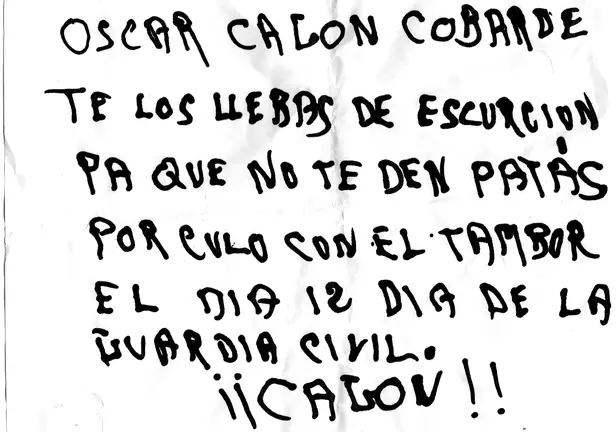 OSCAR CAGON COBARDE
TE LOS LLEBAS DE ESCURCION
PA QUE NO TE DEN PATÁS
POR CULO CON EL TAMBOR
EL DIA 12 DIA DE LA
GUARDIA CIVIL.
¡¡CAGON!!